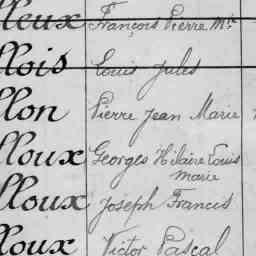 lleux François Pierre Mie
llois Louis Jules
llon Pierre Jean Marie
lloux Georges Hilaire Louis
Marie
lloux Joseph Francis
lloux Victor Pascal